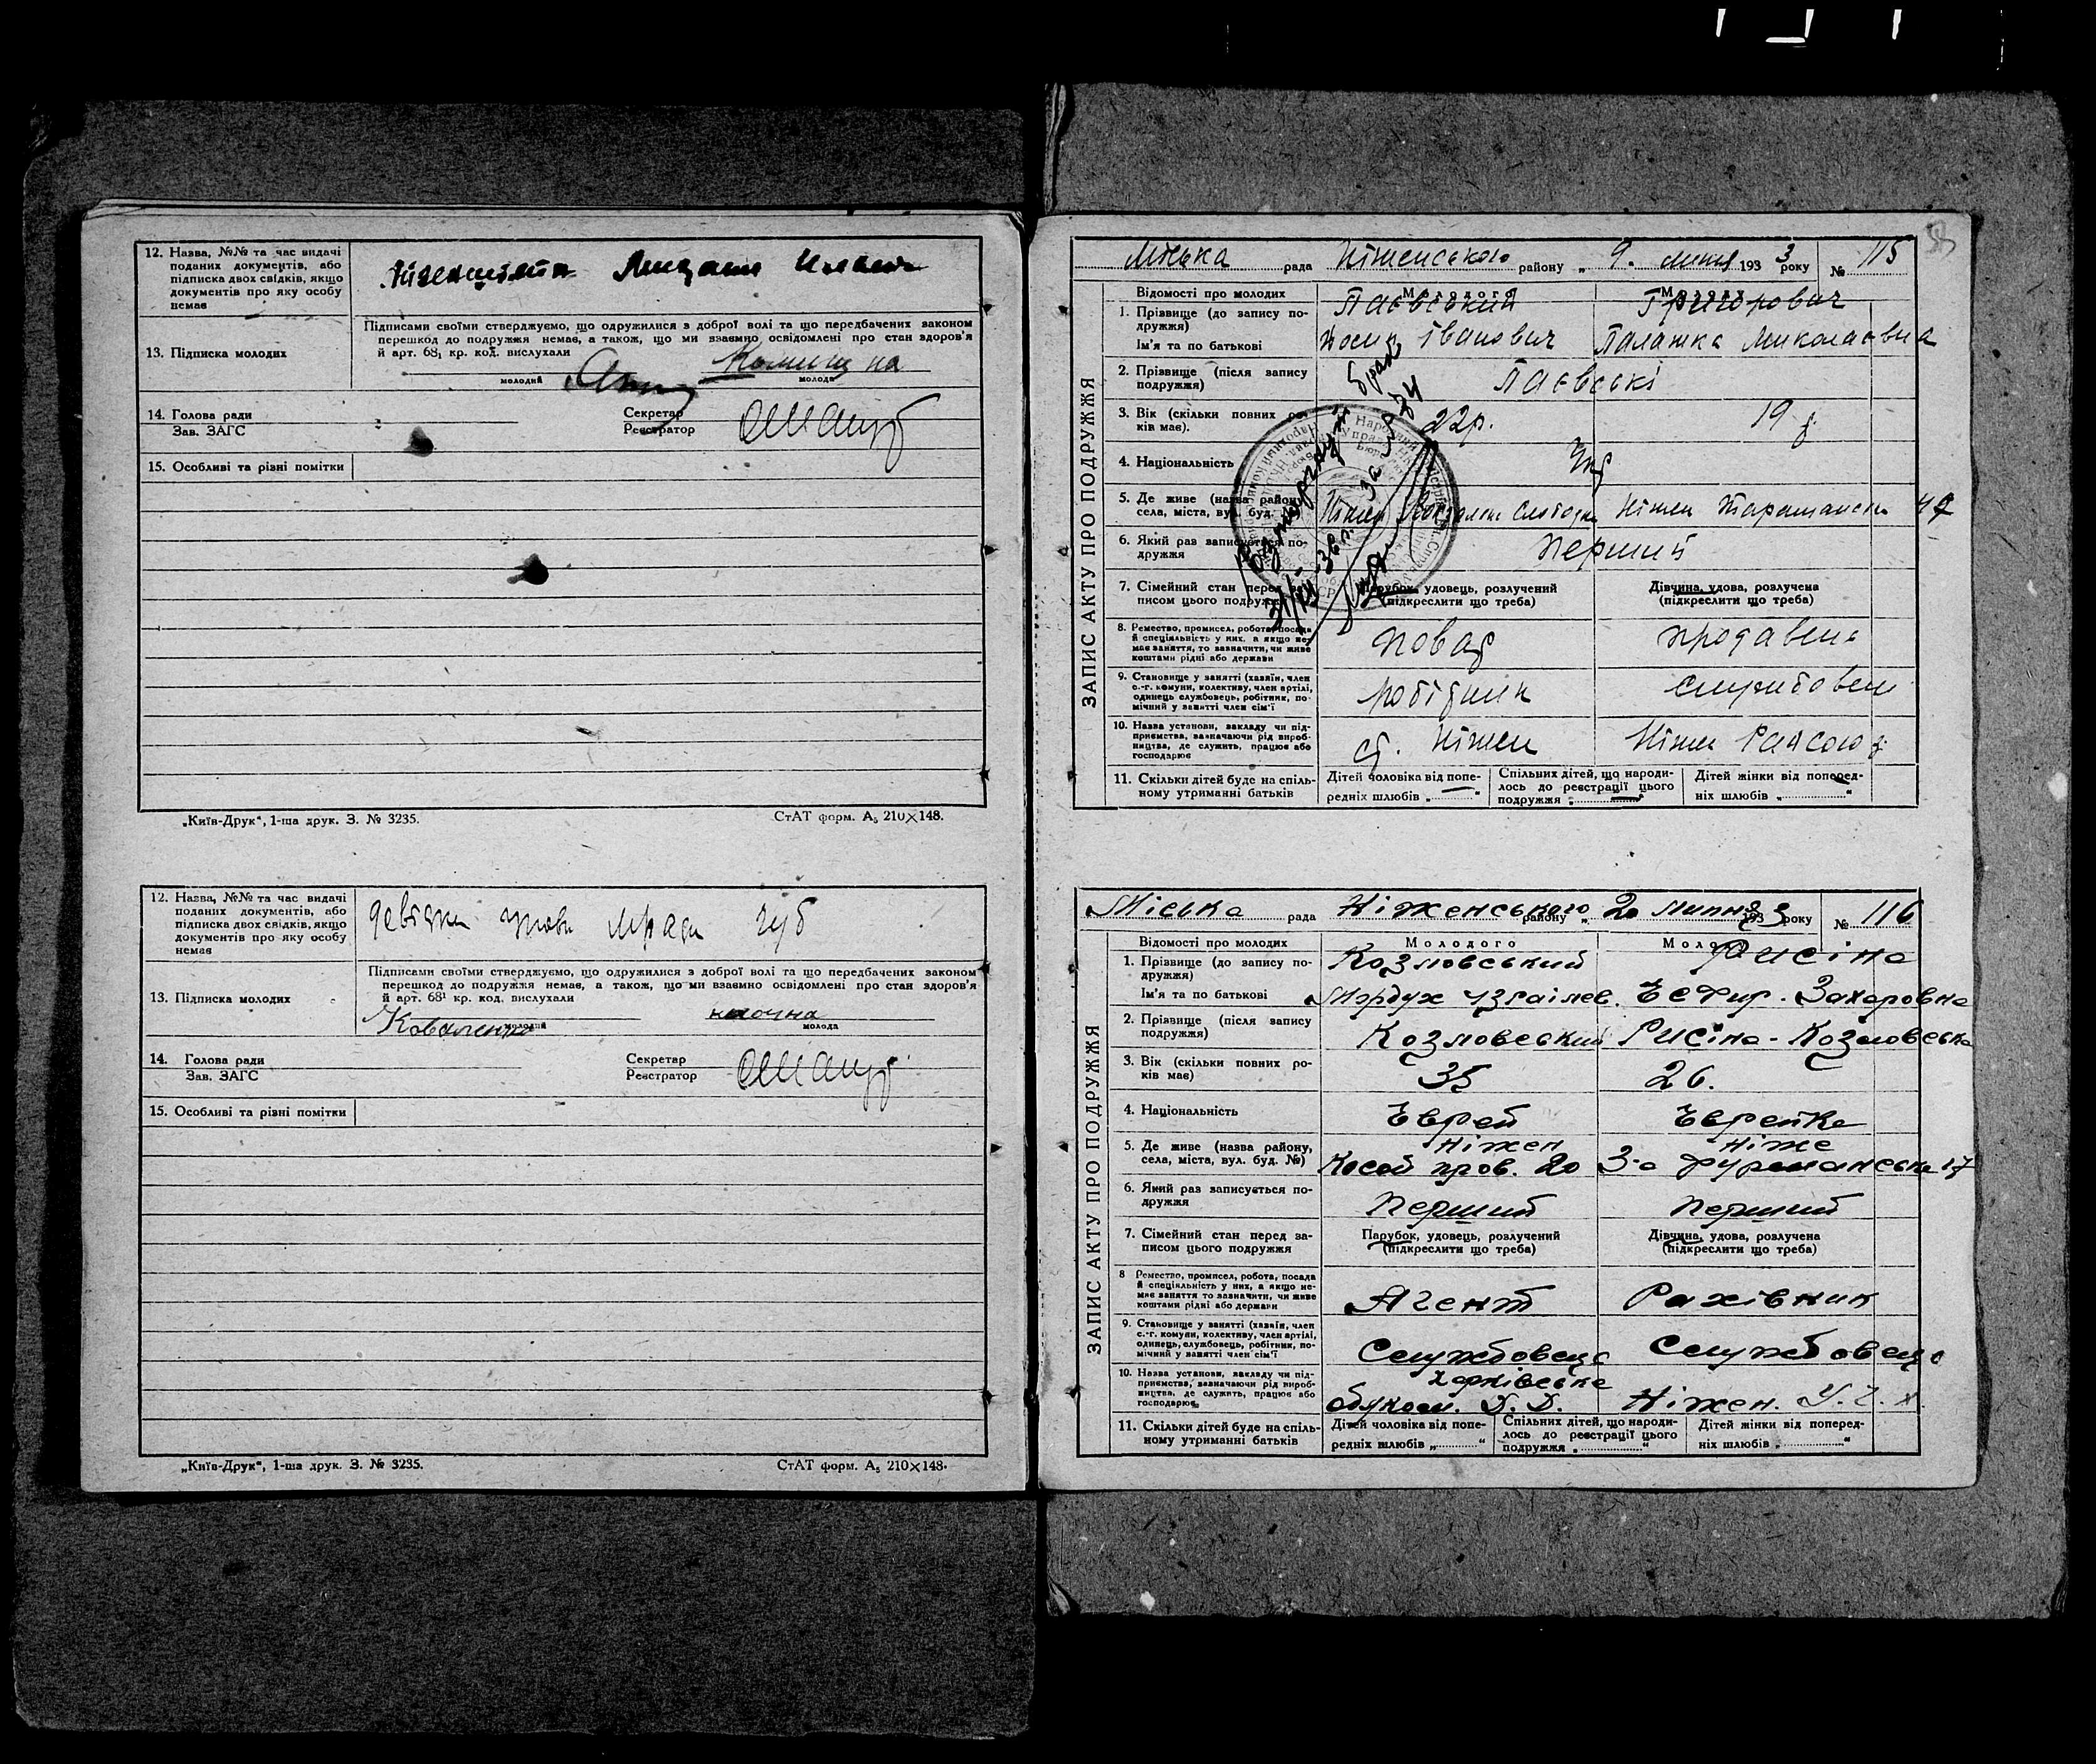 12. Назва, №№ та час видачі
поданих документів, або
підписка двох свідків, якщо
документів про яку особу
немає
13. Підписка молодих
Підписами своїми стверджуємо, що одружилися з доброї волі та що передбачених законом
перешкод до подружжя немає, а також, що ми взаємно освідомлені про стан здоров'я
й арт. 68¹ кр. код. вислухали
молодий
молода
14. Голова ради
Зав. ЗАГС
Секретар
Реєстратор
15. Особливі та різні помітки
„Київ-Друк", 1-ша друк. З. № 3235.
СтАТ форм. А₅ 210×148.
12. Назва, №№ та час видачі
поданих документів, або
підписка двох свідків, якщо
документів про яку особу
немає
13. Підписка молодих
Підписами своїми стверджуємо, що одружилися з доброї волі та що передбачених законом
перешкод до подружжя немає, а також, що ми взаємно освідомлені про стан здоров'я
й арт. 68¹ кр. код. вислухали
Коваленко
молодий
молода
14. Голова ради
Зав. ЗАГС
Секретар
Реєстратор
15. Особливі та різні помітки
„Київ-Друк", 1-ша друк. З. № 3235.
СтАТ форм. А₅ 210×148.
ЗАПИС АКТУ ПРО ПОДРУЖЖЯ
Міська рада Ніженського району „ 9. липня 1933 року № 115
Відомості про молодих
Молодого
1. Прізвище (до запису подружжя)
Паєвський
Григорович
Ім'я та по батькові
Іванович
Палажка Миколаєвна
2. Прізвище (після запису
подружжя)
Паєвські
3. Вік (скільки повних років має).
22р.
19 р
4. Національність
Укр
5. Де живе (назва району,
села, міста, вул. буд. №)
Ніжен
Ніжен
6. Який раз записується подружжя
Перший
7. Сімейний стан перед записом цього подружжя
Парубок, удовець, розлучений
(підкреслити що треба)
Дівчина, удова, розлучена
(підкреслити що треба)
8. Ремество, промисел, робота, посада
й спеціяльність у них, а якщо немає заняття, то зазначити, чи живе
коштами рідні або держави
повар
продавець
9. Становище у занятті (хазяїн, член
с.-г. комуни, колективу, член артілі,
одинець службовець, робітник, помічний у занятті член сім'ї
робітник
службовець
10. Назва установи, закладу чи підприємства, зазначаючи рід виробництва, де служить, працює або
господарює
ст. Ніжен
Ніжен Райсоюз
11. Скільки дітей буде на спільному утриманні батьків
Дітей чоловіка від попередніх шлюбів „ — "
Спільних дітей, що народилось до реєстрації цього
подружжя „ — "
Дітей жінки від попередніх шлюбів „ "
ЗАПИС АКТУ ПРО ПОДРУЖЖЯ
Міська рада Ніженського району „ 20 липня 1933 року № 116
Відомості про молодих
Молодого
1. Прізвище (до запису подружжя)
Козловський
Рисіна
Ім'я та по батькові
Мордух Ізраілев.
Есфир. Захаровна
2. Прізвище (після запису
подружжя)
Козловський
Рисіна - Козловська
3. Вік (скільки повних років має)
35
26.
4. Національність
Еврей
Еврейка
5. Де живе (назва району,
села, міста, вул. буд. №)
Ніжен
Косой пров. 20
Ніже
3-а Фурманська 17
6. Який раз записується подружжя
Перший
Перший
7. Сімейний стан перед записом цього подружжя
Парубок, удовець, розлучений
(підкреслити що треба)
Дівчина, удова, розлучена
(підкреслити що треба)
8 Ремество, промисел, робота, посада
й спеціяльність у них, а якщо немає заняття то зазначити, чи живе
коштами рідні або держави
Агент
Рахівник
9. Становище у занятті (хазяїн, член
с.-г. комуни, колективу, член артілі,
одинець, службовець, робітник, помічний у занятті член сім'ї
Службовець
Службовець
10. Назва установи, закладу чи підприємства, зазначаючи рід виробництва, де служить, працює або
господарює
Харківське
Ніжен.
11. Скільки дітей буде на спільному утриманні батьків
Дітей чоловіка від попередніх шлюбів „ "
Спільних дітей, що народилось до реєстрації цього
подружжя „ "
Дітей жінки від попередніх шлюбів „ "